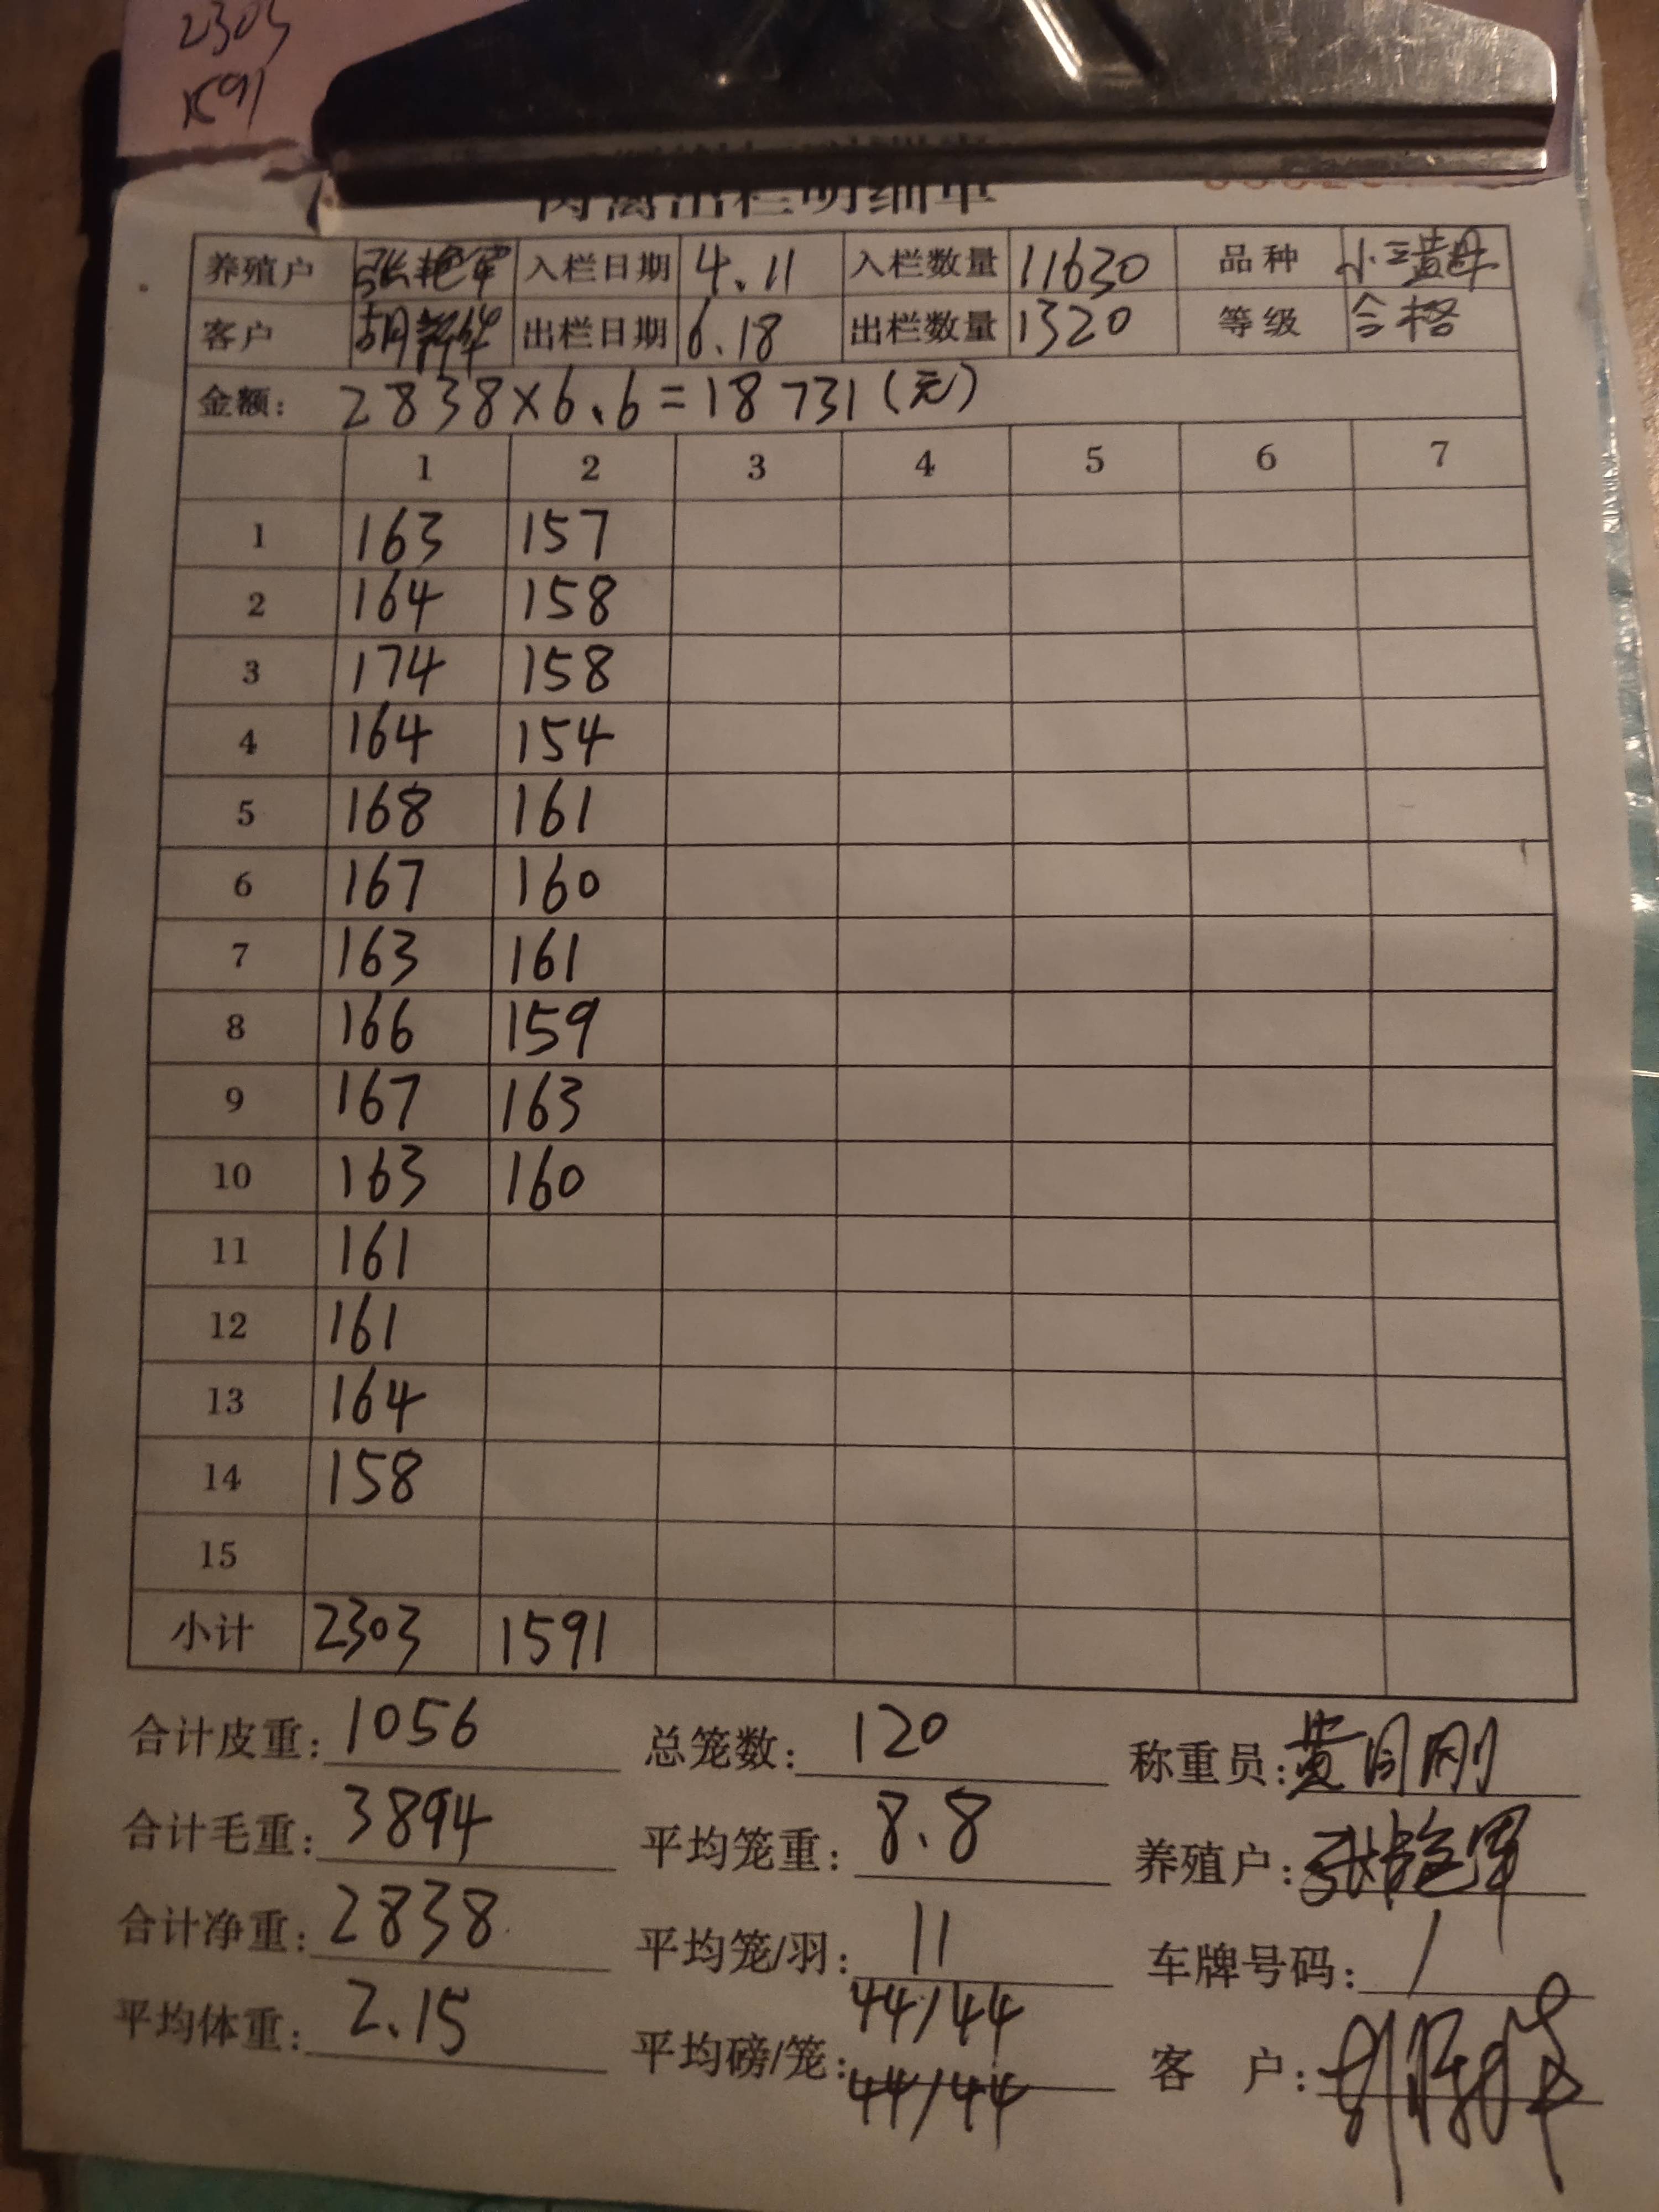 2303
1591
肉禽出栏明细单
养殖户 张艳军 入栏日期 4.11 入栏数量 11630 品种 小三黄母
客户 胡 出栏日期 6.18 出栏数量 1320 等级 合格
金额: 2838×6.6=18731(元)
1 2 3 4 5 6 7
1 163 157
2 164 158
3 174 158
4 164 154
5 168 161
6 167 160
7 163 161
8 166 159
9 167 163
10 163 160
11 161
12 161
13 164
14 158
15
小计 2303 1591
合计皮重: 1056 总笼数: 120 称重员: 黄同刚
合计毛重: 3894 平均笼重: 8.8 养殖户: 张艳军
合计净重: 2838 平均笼/羽: 11 车牌号码: /
平均体重: 2.15 平均磅/笼: 44/44 客 户:
44/44